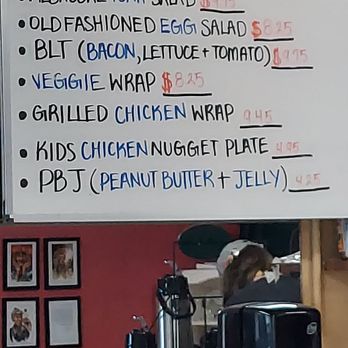 SALAD
• OLD FASHIONED EGG SALAD $8.25
• BLT (BACON, LETTUCE + TOMATO) $9.75
• VEGGIE WRAP $8.25
• GRILLED CHICKEN WRAP 9.45
• KIDS CHICKEN NUGGET PLATE 4.95
• PBJ (PEANUT BUTTER + JELLY) 4.25